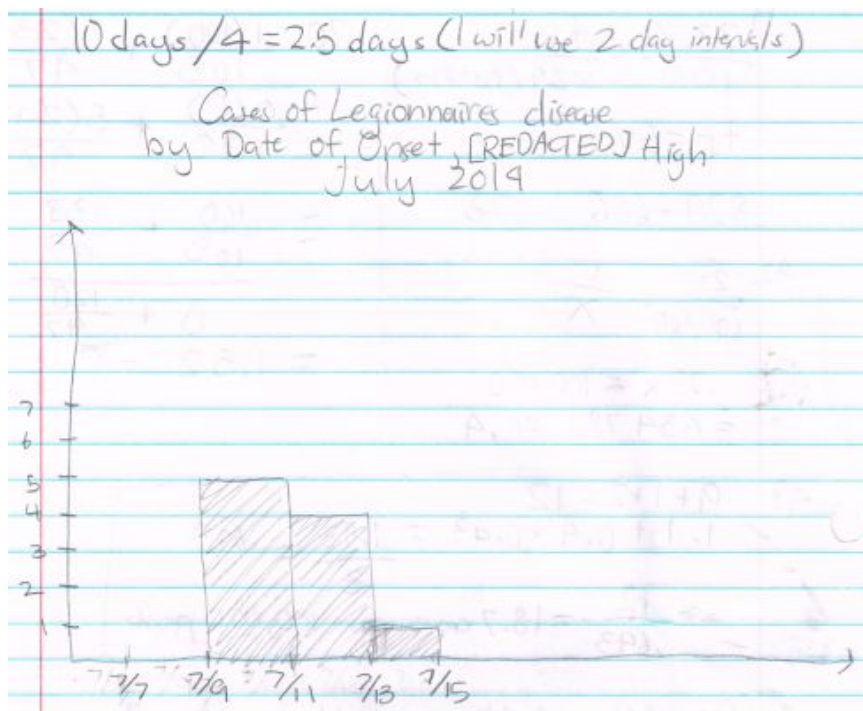 10 days/4 = 2.5 days (I will use 2 day intervals)
Cases of Legionnaires disease
by Date of Onset, [REDACTED] High
July 2014
7
6
5
4
3
2
1
7/7
7/9
7/11
7/13
7/15